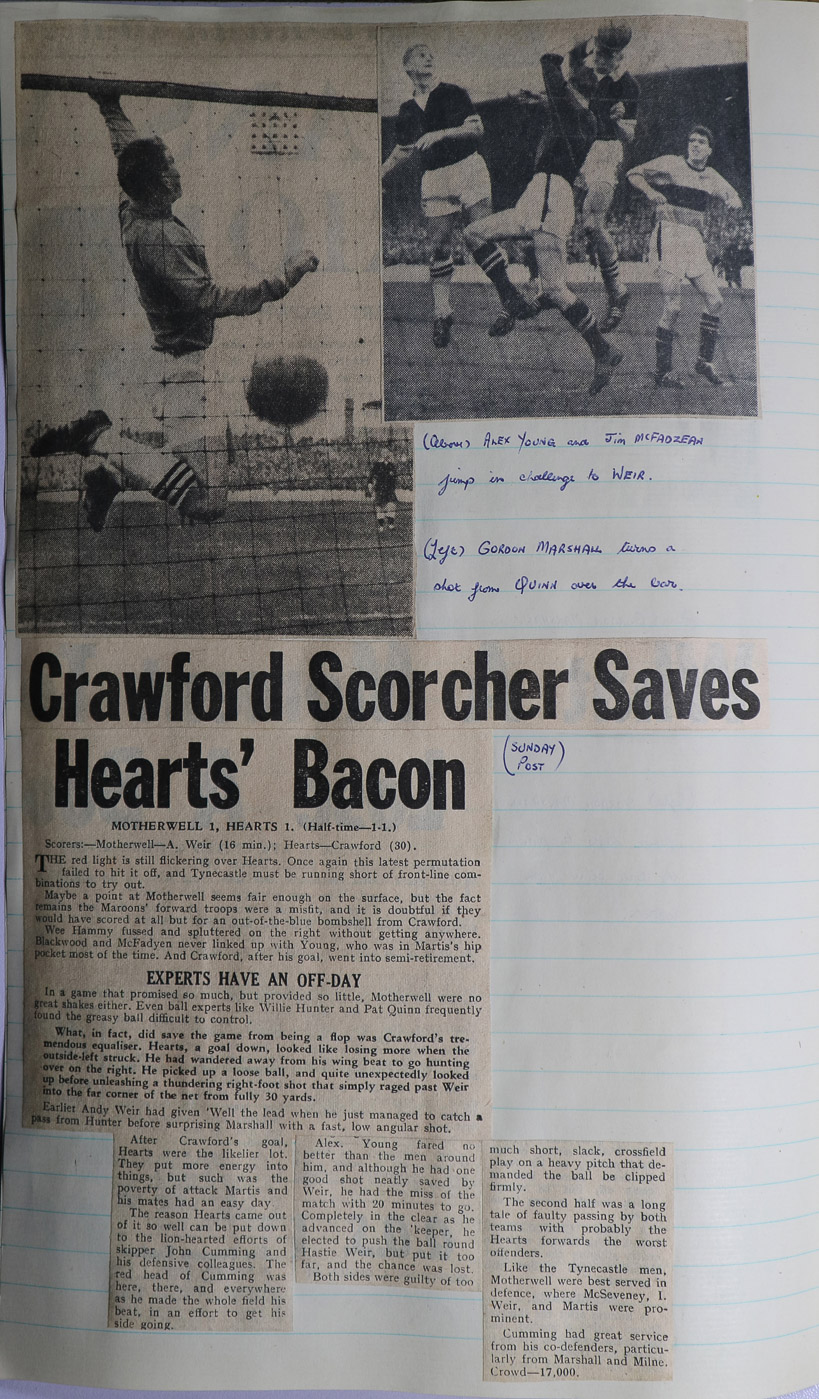 (Above) ALEX YOUNG and Jim McFADZEAN
jump in challenge to WEIR.
(Left) GORDON MARSHALL turns a
shot from QUINN over the bar.
Crawford Scorcher Saves
Hearts' Bacon
(SUNDAY
POST)
MOTHERWELL 1, HEARTS 1. (Half-time—1-1.)
Scorers:—Motherwell—A. Weir (16 min.); Hearts—Crawford (30).
THE red light is still flickering over Hearts. Once again this latest permutation
failed to hit it off, and Tynecastle must be running short of front-line com-
binations to try out.
Maybe a point at Motherwell seems fair enough on the surface, but the fact
remains the Maroons' forward troops were a misfit, and it is doubtful if they
would have scored at all but for an out-of-the-blue bombshell from Crawford.
Wee Hammy fussed and spluttered on the right without getting anywhere.
Blackwood and McFadyen never linked up with Young, who was in Martis's hip
pocket most of the time. And Crawford, after his goal, went into semi-retirement.
EXPERTS HAVE AN OFF-DAY
In a game that promised so much, but provided so little, Motherwell were no
great shakes either. Even ball experts like Willie Hunter and Pat Quinn frequently
found the greasy ball difficult to control.
What, in fact, did save the game from being a flop was Crawford's tre-
mendous equaliser. Hearts, a goal down, looked like losing more when the
outside-left struck. He had wandered away from his wing beat to go hunting
over on the right. He picked up a loose ball, and quite unexpectedly looked
up before unleashing a thundering right-foot shot that simply raged past Weir
into the far corner of the net from fully 30 yards.
Earlier Andy Weir had given 'Well the lead when he just managed to catch a
pass from Hunter before surprising Marshall with a fast, low angular shot.
After Crawford's goal,
Hearts were the likelier lot.
They put more energy into
things, but such was the
poverty of attack Martis and
his mates had an easy day.
The reason Hearts came out
of it so well can be put down
to the lion-hearted efforts of
skipper John Cumming and
his defensive colleagues. The
red head of Cumming was
here, there, and everywhere
as he made the whole field his
beat, in an effort to get his
side going.
Alex. Young fared no
better than the men around
him, and although he had one
good shot neatly saved by
Weir, he had the miss of the
match with 20 minutes to go.
Completely in the clear as he
advanced on the 'keeper, he
elected to push the ball round
Hastie Weir, but put it too
far, and the chance was lost.
Both sides were guilty of too
much short, slack, crossfield
play on a heavy pitch that de-
manded the ball be clipped
firmly.
The second half was a long
tale of faulty passing by both
teams with probably the
Hearts forwards the worst
offenders.
Like the Tynecastle men,
Motherwell were best served in
defence, where McSeveney, I.
Weir, and Martis were pro-
minent.
Cumming had great service
from his co-defenders, particu-
larly from Marshall and Milne.
Crowd—17,000.